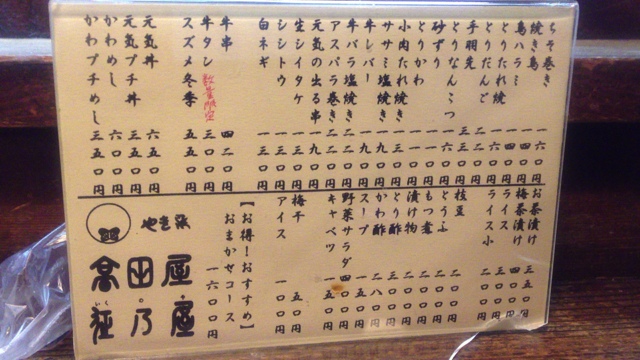 ちそ巻き 一六〇円
焼き鳥 一四〇円
鳥ハラミ 一四〇円
とりたれ焼 一六〇円
とりだんご
手羽先
とりなんこつ
砂ずり 一六〇円
とりかわ
小肉たれ焼き
ササミ塩焼き 一九〇円
牛レバー 一九〇円
牛バラ塩焼き
アスパラ巻き
元気の出る串 一九〇円
生シイタケ
シシトウ
白ネギ
牛串 四二〇円
牛タン 数量限定 三〇〇円
スズメ冬季 五五〇円
元気丼 六五〇円
元気プチ丼 三五〇円
かわめし 六〇〇円
かわプチめし 三五〇円
お茶漬け 三五〇円
梅茶漬け 四〇〇円
ライス 三〇〇円
ライス小 二〇〇円
枝豆 二〇〇円
とうふ
もつ煮
漬け物 二〇〇円
とり酢 三〇〇円
かわ酢 二八〇円
スープ 一〇〇円
野菜サラダ 四〇〇円
キャベツ 一五〇円
梅干 五〇円
アイス 一〇〇円
【お得!おすすめ】
おまかせコース 一六〇〇円
やき鳥
高田屋